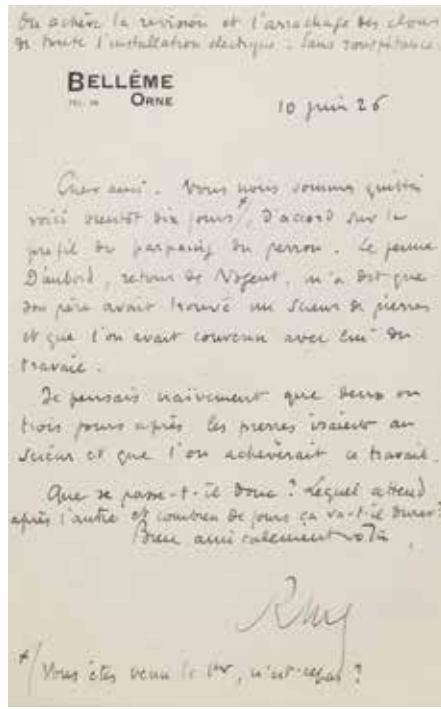 On achève la revision et l'arrachage des clous
de toute l'installation electrique : Sans rouspétance.
BELLÊME
TEL. 28 ORNE
10 juin 26
Cher ami. Vous nous sommes quittés
voici bientôt dix jours*/, d'accord sur le
profil du parpaing du perron. Le jeune
, retour de Nogent, m'a dit que
son père avait trouvé un scieur de pierres
et que l'on avait convenu avec lui du
travail.
Je pensais naïvement que deux ou
trois jours après les pierres iraient au
scieur et que l'on achèverait ce travail.
Que se passe-t-il donc ? Lequel attend
après l'autre et combien de jours ça va-t-il durer ?
Bien amicalement votre
*/ Vous êtes venu le 1er, n'est-ce pas ?